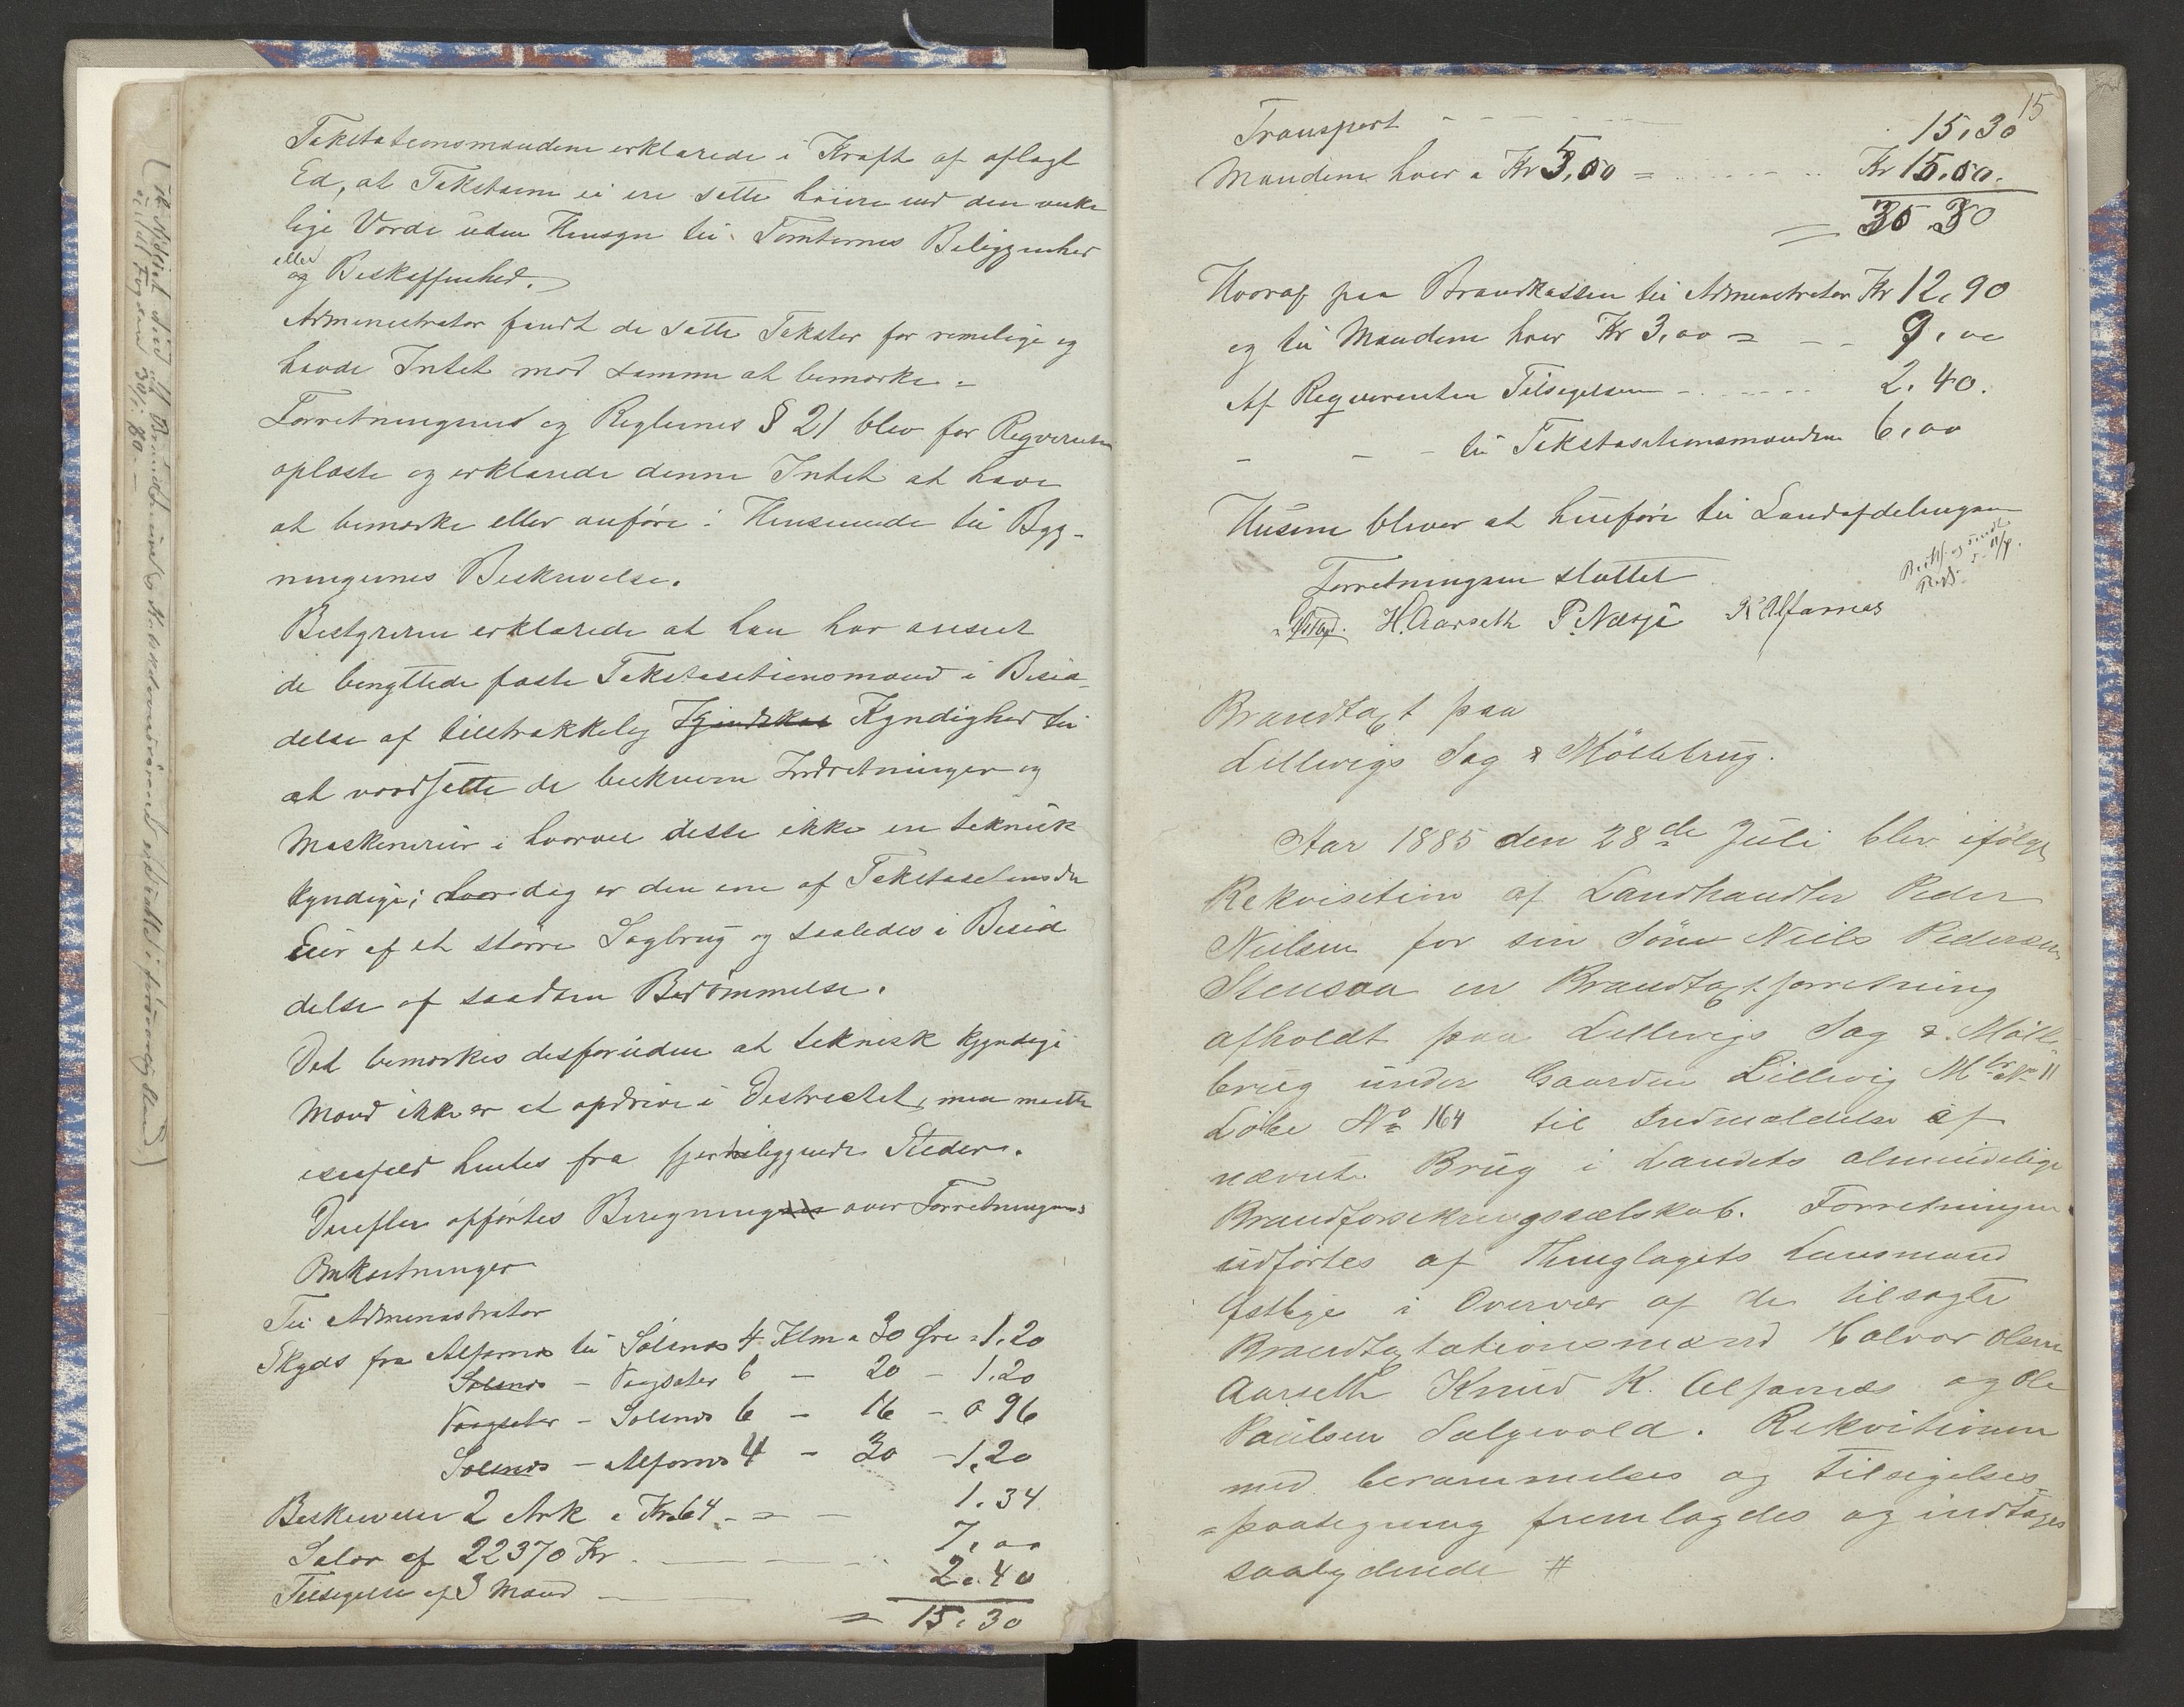 Takstationsmændene erklærede i Kraft af aflagt
Ed, at Taksterne ei ere satte høiere end den virke
lige Værdi uden Hensyn til Tomternes Beliggenhed
eller
og Beskaffenhed.
Administrator fandt de satte Takster for rimelige og
havde Intet mod samme at bemærke.
Forretningens og Reglernes § 21 blev for Reqvirenten
oplæste og erklærede denne Intet at have
at bemærke eller anføre i Henseende til Byg-
ningernes Beskrivelse.
Bestyreren erklærede at han har anseet
de benyttede faste Takstasetionsmænd i Besid-
delse af tilstrækkelig Kyndighed til
at værdsætte de beskrevne Indretninger og
Maskinerier i hvorvel disse ikke ere teknisk
kyndige; hvordig er den ene af
Eier af et større Sagbrug og saaledes i Besid
delse af saadan Bedømmelse.
Det bemærkes desforuden at teknisk kyndige
Mænd ikke er at opdrive i Destrictet, men maatte
isaafald hentes fra fjerneliggende Steder.
Derefter opførtes Beregning over Forretningens
Omkostninger
Til Administrator
Skyds fra Alfarnæs til Solsnæs 4 Klm a 30 Øre = 1.20
Solsnæs - Vaagsæter 6 - 20 - 1.20
Vaagsæter - Solsnæs 6 - 16 - 0 96
Solsnæs - Alfarnæs 4 - 30 - 1.20
Beskrivelse 2 Ark a Kr. 64 - = - 1.34
Salær af 22370 Kr. 7.00
Tilsigelse af 3 Mænd 2.40
= 15.30
15
Transport 15.30
Mændene hver a Kr 5,00 = Kr 15.00.
= 30 30
Hvoraf paa Brandkassen til Administrator Kr 12.90
og til Mændene hver Kr 3,00 = - - 9,00
Af Reqvirenten Tilsigelsen - 2.40.
- - - til Takstasationsmændene 6,00
Husene bliver at henføre til Landafdelingen
Forretningen sluttet
H. Aarseth P. Næsje K Alfarnæs
Brandtaxt paa
Lillevigs Sag & Möllebrug.
Aar 1885 den 28de Juli blev ifölge
Rekvisition af Landhandler Peder
Nielsen for sin Sön Niels Pedersen
Stensaa en Brandtaxtforretning
afholdt paa Lillevigs Sag & Mölle
brug under Gaarden Lillevig Mtr No 11
Löbe No 164 til Indmeldelse af
nævnte Brug i Landets almindelige
Brandforsikringsselskab. Forretningen
udførtes af Thinglagets Lensmand
Østbye i Overvær af de tilsagte
Brandtaxtationsmænd Halvor Olsen
Aarseth Knud K. Alfarnæs og Ole
Paulsen Sølgevold. Rekvitionen
med berammelses og Tilsigelses
= paategning fremlagdes og indtages
saalydende #